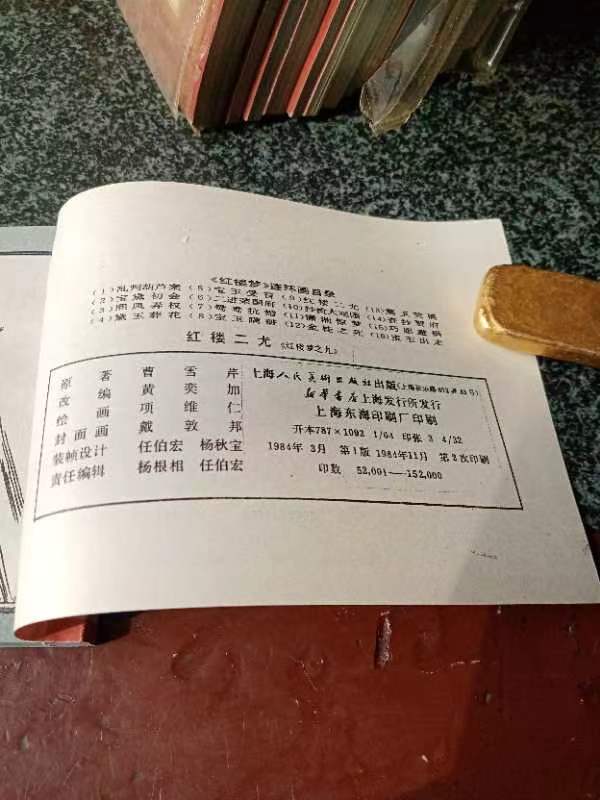 《红楼梦》连环画目录
(1)乱判葫芦案 (5)宝玉受笞 (9)红楼二尤 (13)黛玉焚稿
(2)宝黛初会 (6)二进荣国府 (10)抄检大观园 (14)查抄贾府
(3)熙凤弄权 (7)鸳鸯抗婚 (11)潇湘惊梦 (15)巧姐避祸
(4)黛玉葬花 (8)宝玉瞒赃 (12)金桂之死 (16)宝玉出走
红楼二尤 (红楼梦之九)
原著 曹雪芹
改编 黄奕加
绘画 项维仁
封面画 戴敦邦
装帧设计 任伯宏 杨秋宝
责任编辑 杨根相 任伯宏
上海人民美术出版社出版
新华书店上海发行所发行
上海东海印刷厂印刷
开本787×1092 1/64 印张 3 4/32
1984年 3月 第1版 1984年11月 第2次印刷
印数 52,001—152,000